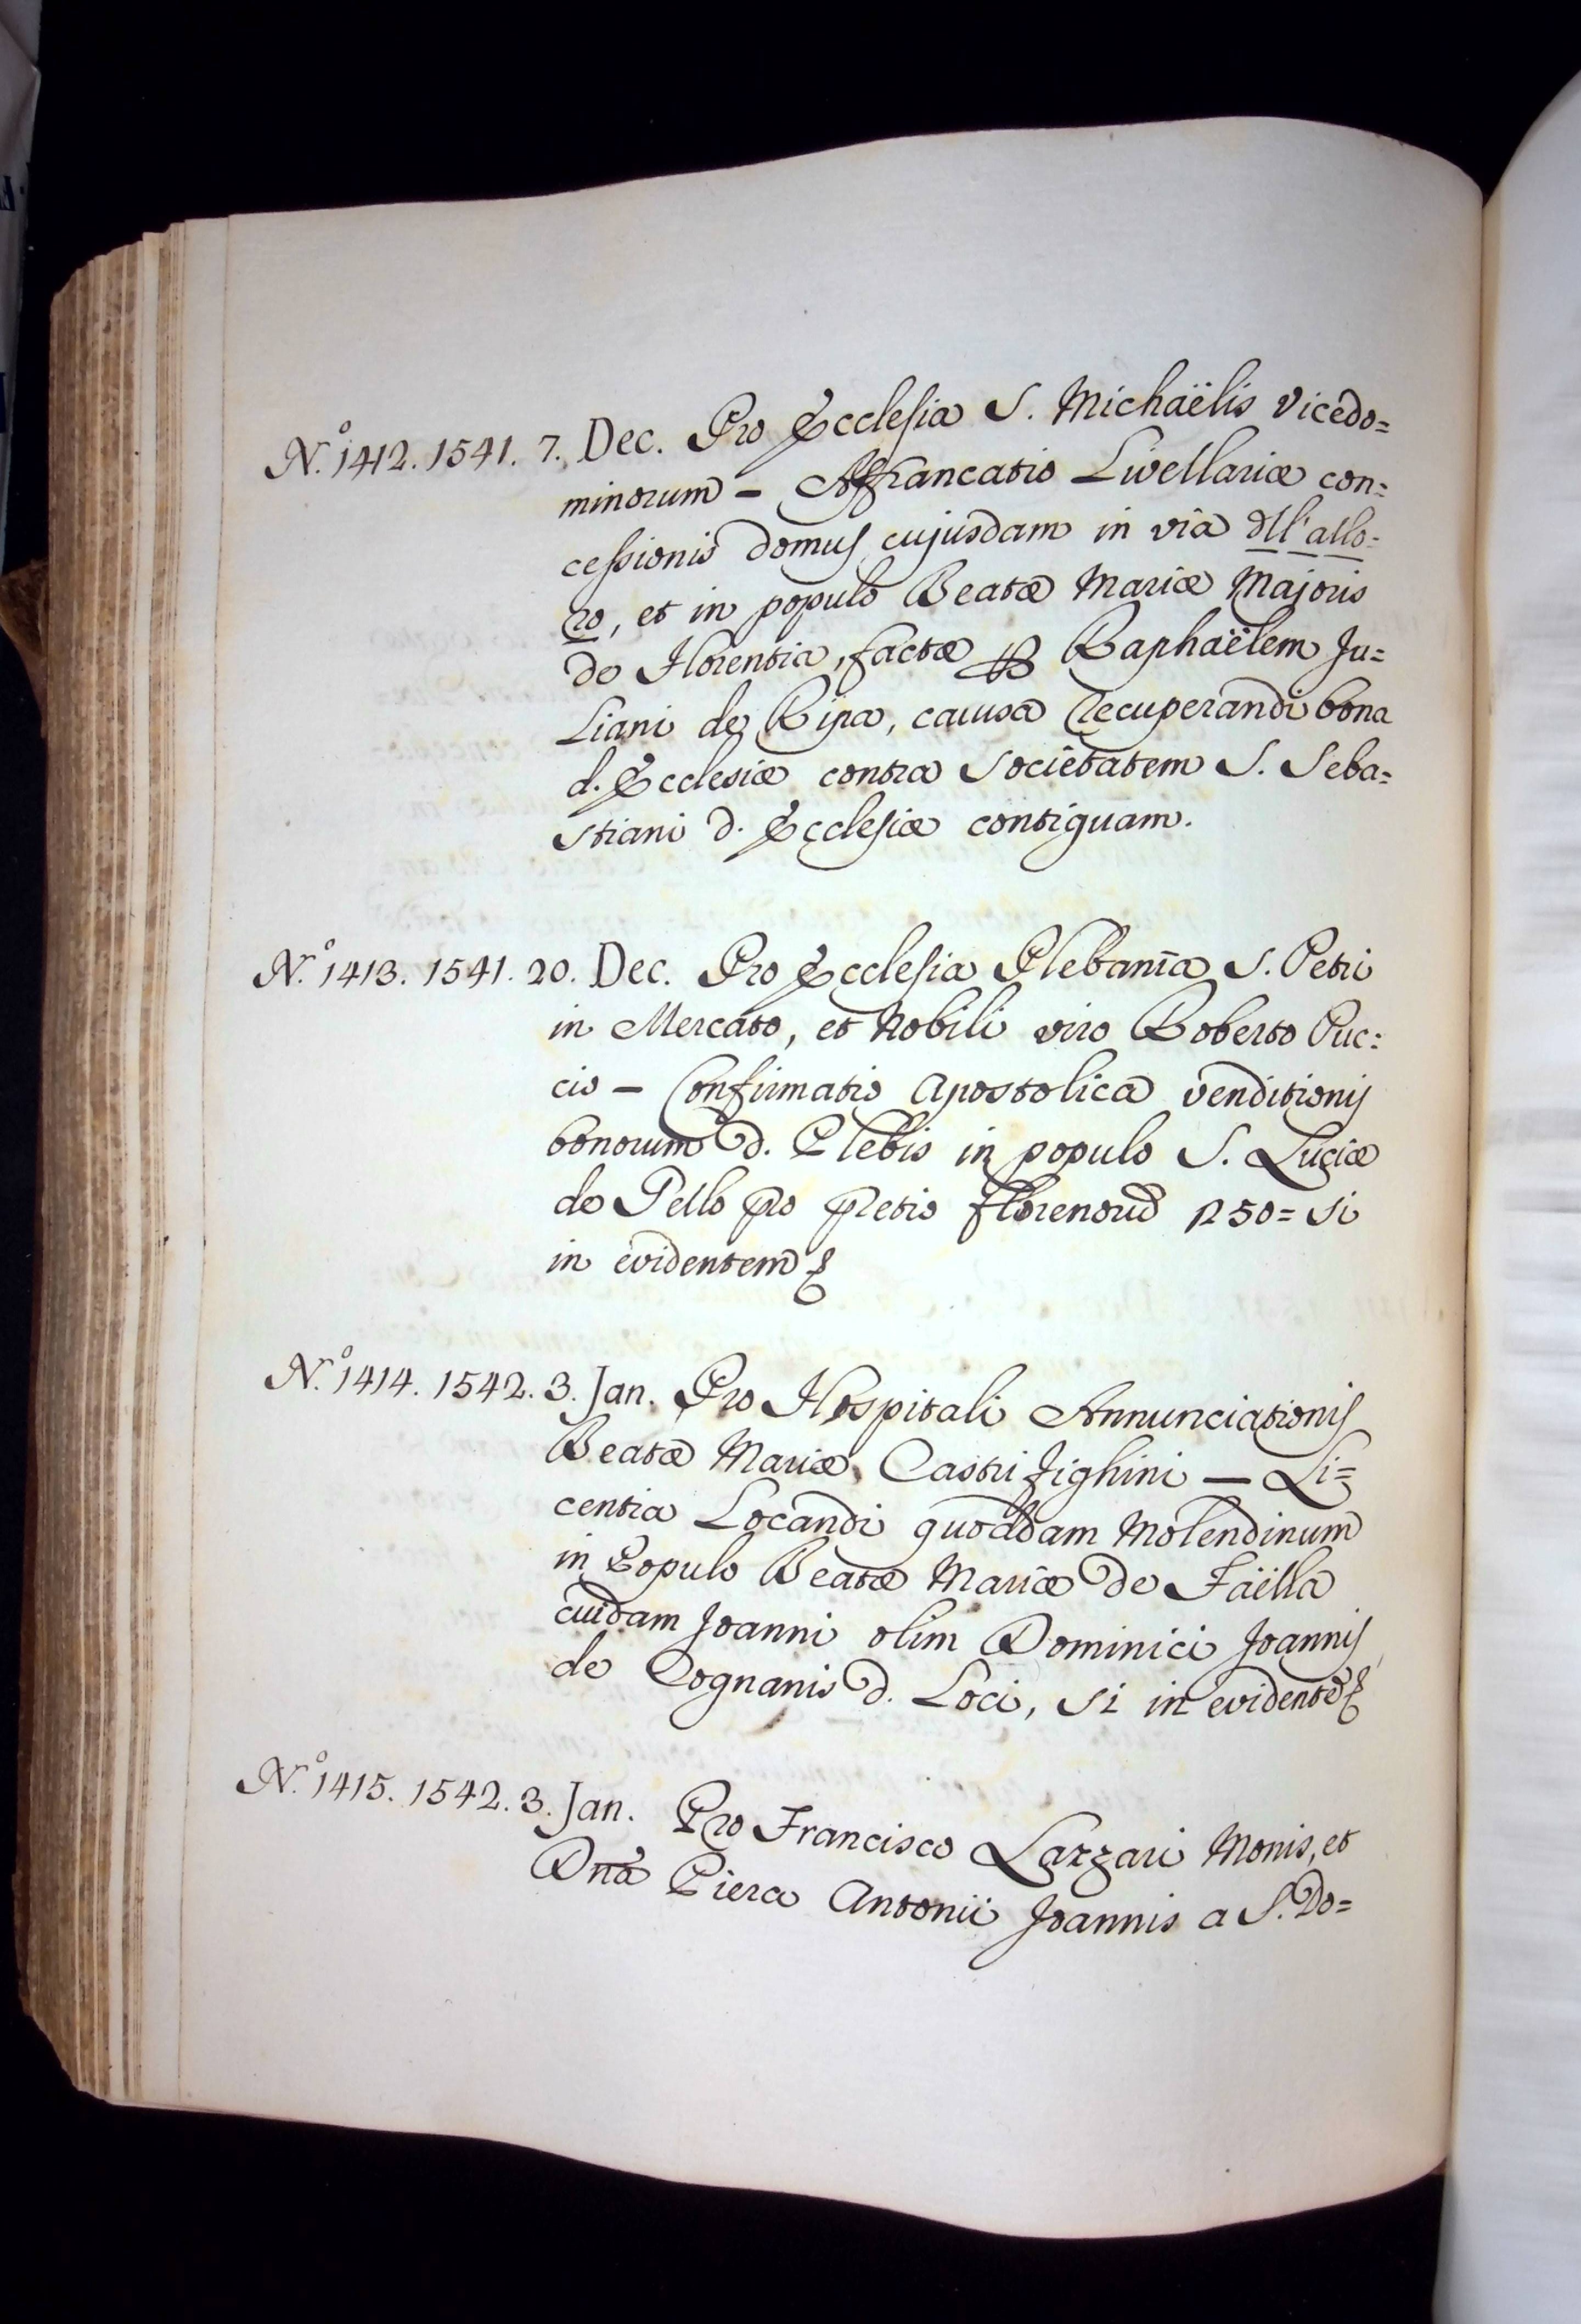 N.º 1412. 1541. 7. Dec. Pro Ecclesia S. Michaëlis Vicedo=
minorum – Affrancatio Livellariæ con=
cessionis domus cujusdam in via dll'allo=
ro, et in populo Beatæ Mariæ Majoris
de Florentia, factæ Raphaëlem Ju=
liani de Ripa, causa recuperandi bona
d. Ecclesiæ contra Societatem S. Seba=
stiani d. Ecclesiæ contiguam.
N.º 1413. 1541. 20. Dec. Pro Ecclesia Plebania S. Petri
in Mercato, et Nobili viro Roberto Puc=
cio – Confirmatio Apostolica venditionis
bonorum d. Plebis in populo S. Luciæ
de Pello pro pretio florenorū 1250= si
in evidentem
N.º 1414. 1542. 3. Jan. Pro Hospitali Annunciationis
Beatæ Mariæ Castri Fighini – Li=
centia Locandi quoddam Molendinum
in Populo Beatæ Mariæ de Faëlla
cuidam Joanni olim Dominici Joannis
de Cognanis d. Loci, si in evidentē
N.º 1415. 1542. 3. Jan. Pro Francisco Lazzari Monis, et
Dnā Piera Antonii Joannis a S. Do=